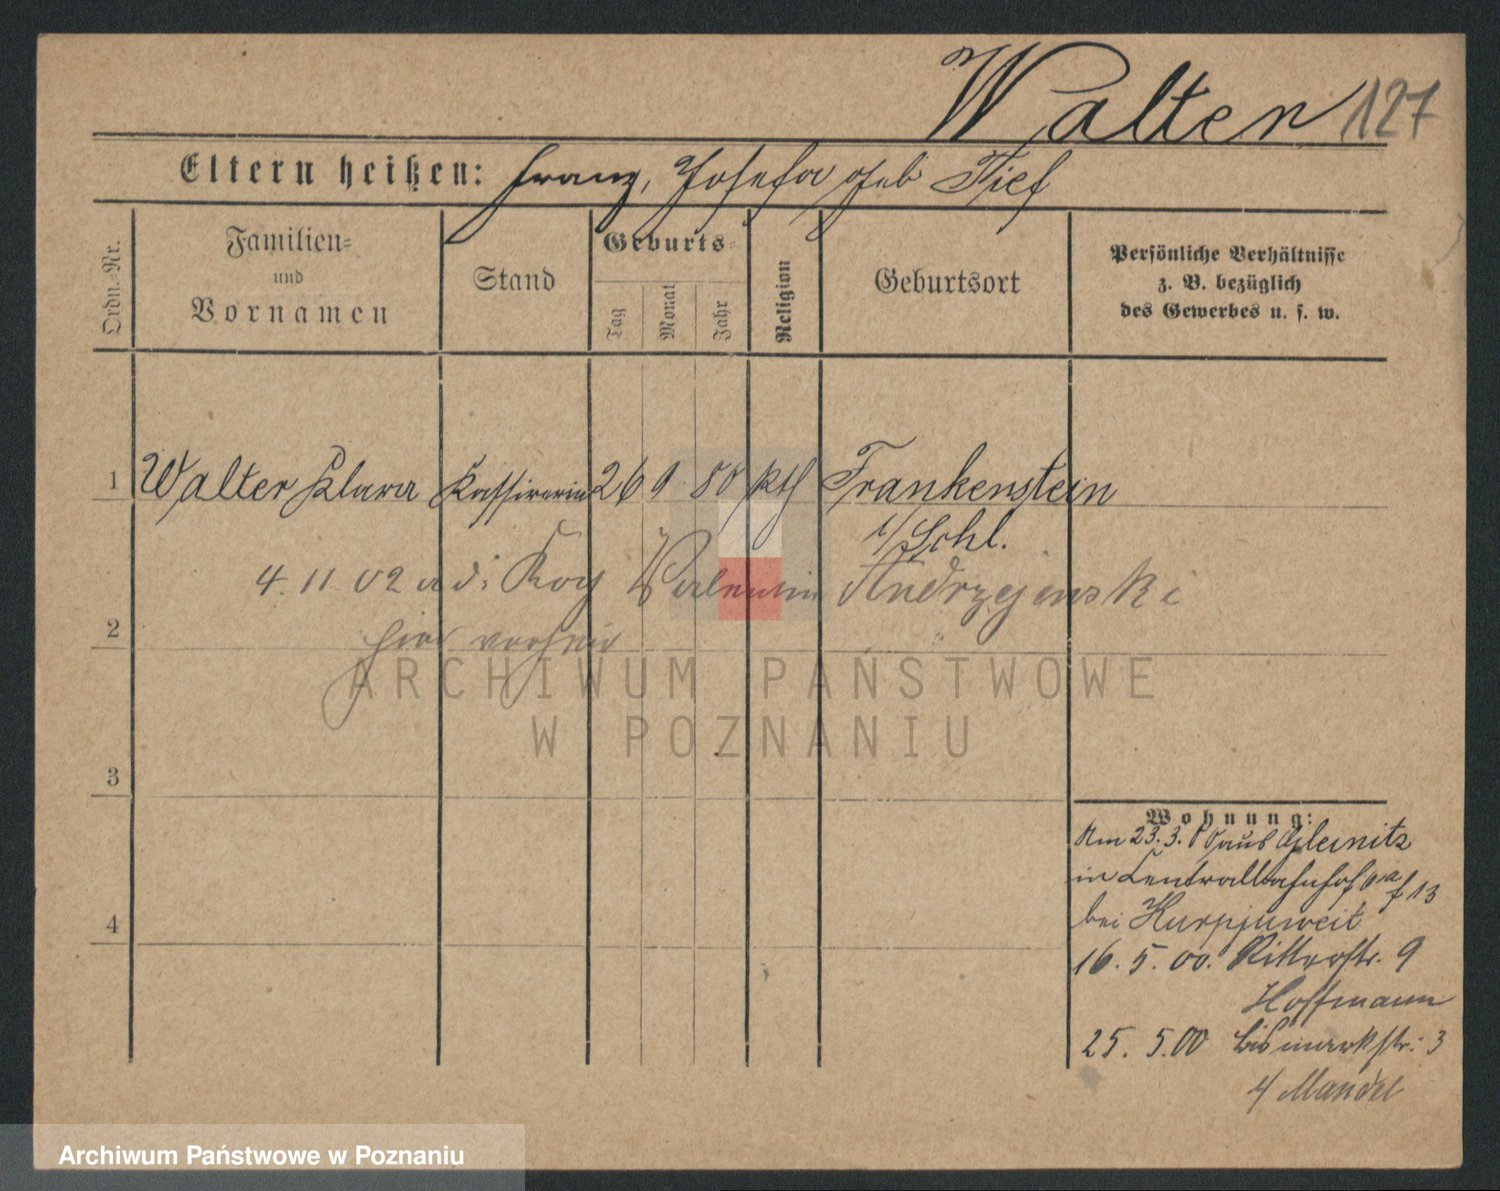 Walter 127
Eltern heißen: Franz, Josefa geb Tief
Ordn.-Nr.
Familien-
und
Vornamen
Stand
Geburts-
Tag
Monat
Jahr
Religion
Geburtsort
Persönliche Verhältnisse
z. B. bezüglich
des Gewerbes u. s. w.
1 Walter Klara Kassirerin 26 9 80 kth Frankenstein
i/Schl.
4. 11 02 Valentin Andrzejewski
2 hier verheir
3
4
Wohnung:
Am 23.3.00 aus Gleinitz
in Centralbahnhof 13
bei Kurpjuweit
16. 5. 00. Ritterstr. 9
Hoffmann
25. 5. 00 Bismarkstr: 3
Mandel
ARCHIWUM PAŃSTWOWE
W POZNANIU
Archiwum Państwowe w Poznaniu